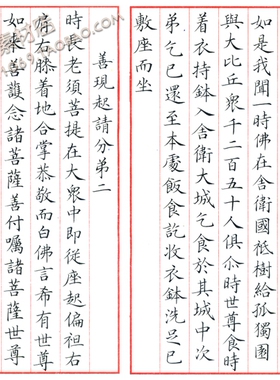 如是我聞一時佛在舍衛國祇樹給孤獨園
與大比丘衆千二百五十人俱尒時世尊食時
着衣持鉢入舍衛大城乞食於其城中次
弟乞已還至本處飯食訖收衣鉢洗足已
敷座而坐
善現起請分第二
時長老須菩提在大衆中即從座起偏袒右
肩右膝着地合掌恭敬而白佛言希有世尊
如来善護念諸菩薩善付囑諸菩薩世尊